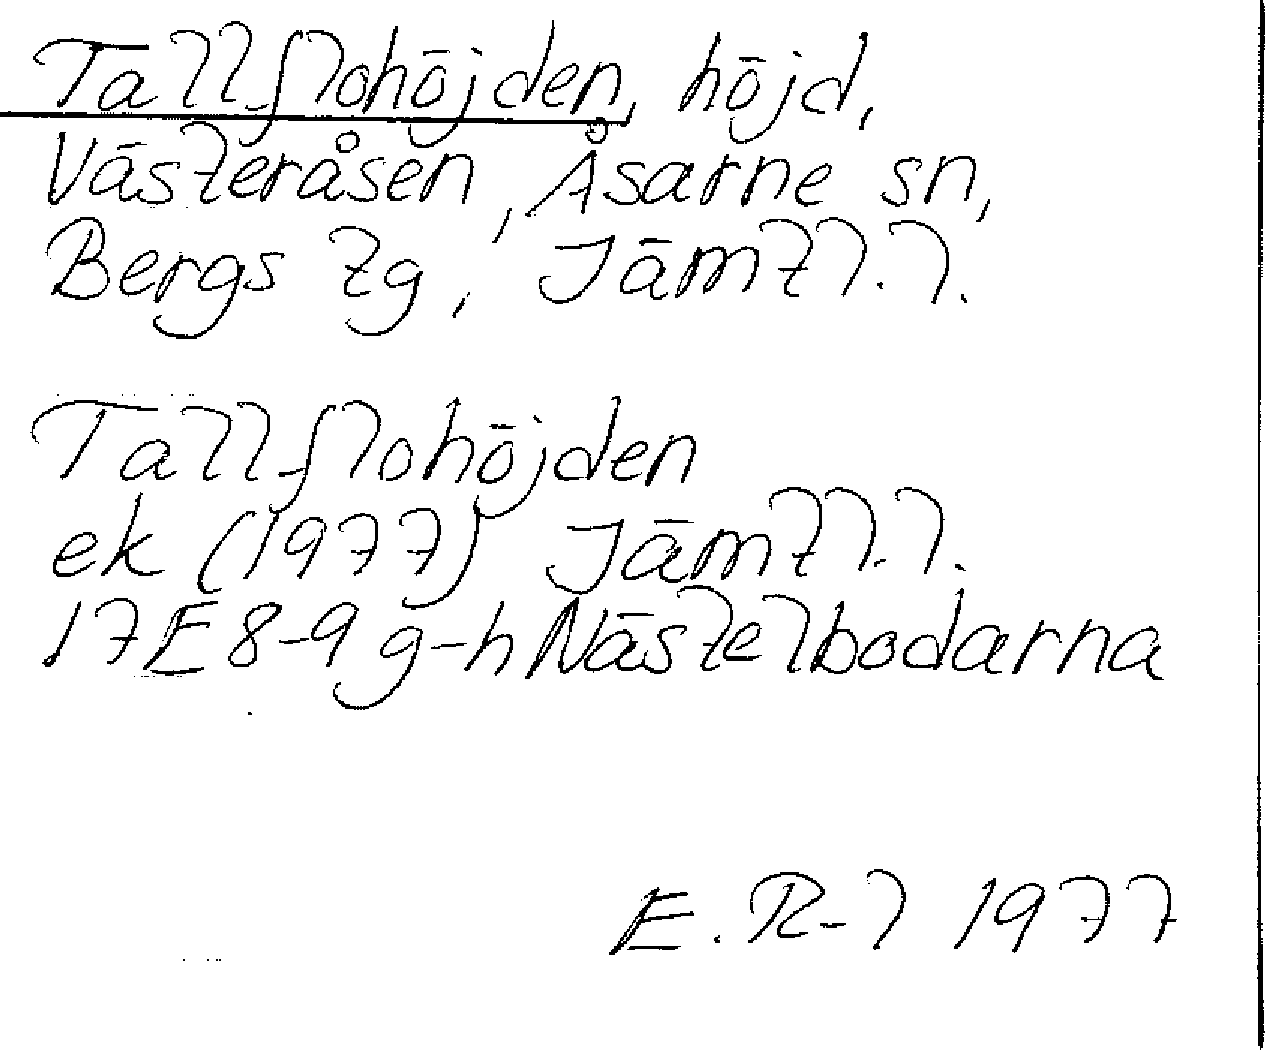 Tallflohöjden, höjd,
Västeråsen, Åsarne sn,
Bergs tg, Jämtl.l.
Tallflohöjden
ek (1977) Jämtl.l.
17E 8-9 g-h Nästelbodarna
E. R-l 1977